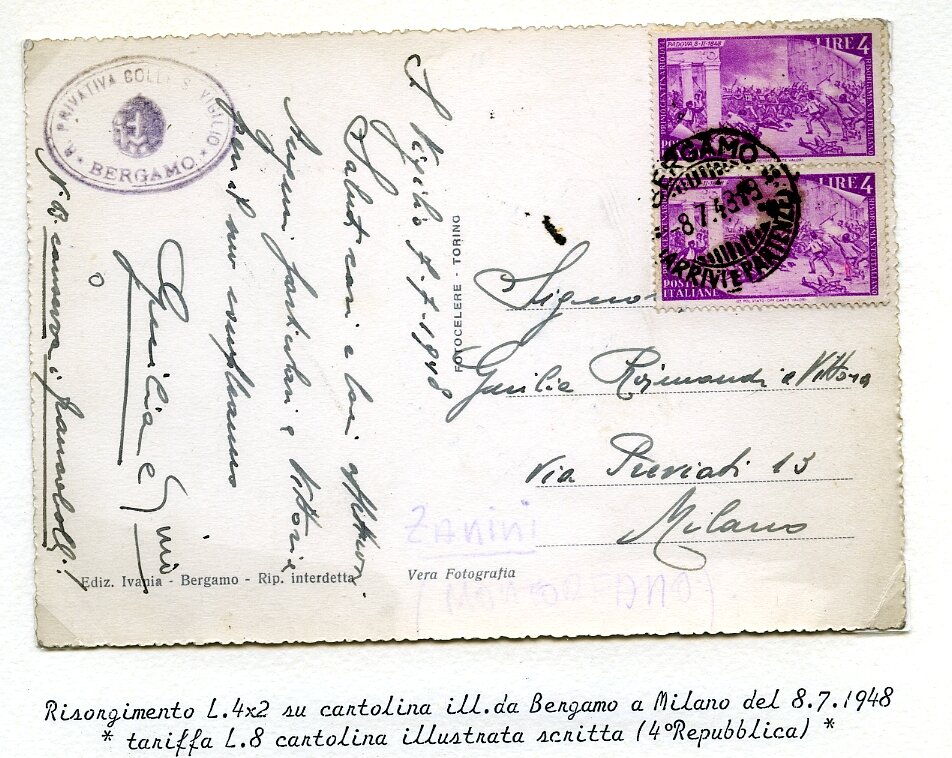 R. PRIVATIVA COLLE S. VIGILIO
* BERGAMO *
S. Vigilio 7-7-1948
Saluti cari e baci affettuosi
Auguri particolari a Vittoria
per il suo compleanno
Giulia e Gino
N.B. conserva i francobolli!
Ediz. Ivania - Bergamo - Rip. interdetta
FOTOCELERE - TORINO
Vera Fotografia
PADOVA 8-II-1848
LIRE 4
RISORGIMENTO ITALIANO
LIRE 4
RISORGIMENTO ITALIANO
POSTE
ITALIANE
BERGAMO
-8.7.48
ARRIVI E PARTENZE
Signor
Raimondi e Vittoria
Via Previati 13
Milano
ZANINI
Risorgimento L.4x2 su cartolina ill.da Bergamo a Milano del 8.7.1948
* tariffa L.8 cartolina illustrata scritta (4°Repubblica) *